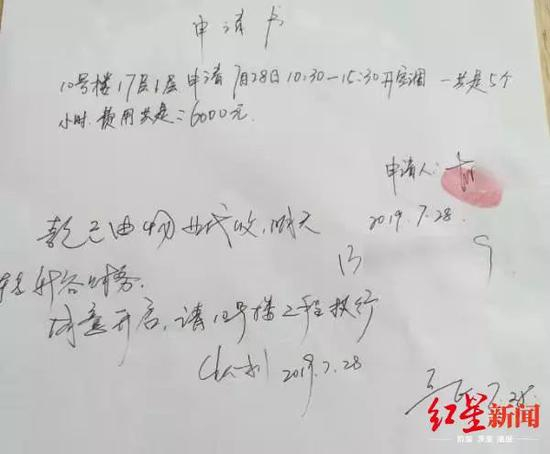 申请书
10号楼17层1层申请7月28日10:30—15:30开空调 一共是5个
小时.费用共是:6000元.
申请人:
2019.7.28.
款已由物业代收,明天
转 财务.
同意开启,请10号楼工程执行
2019.7.28
7.28.
红星新闻